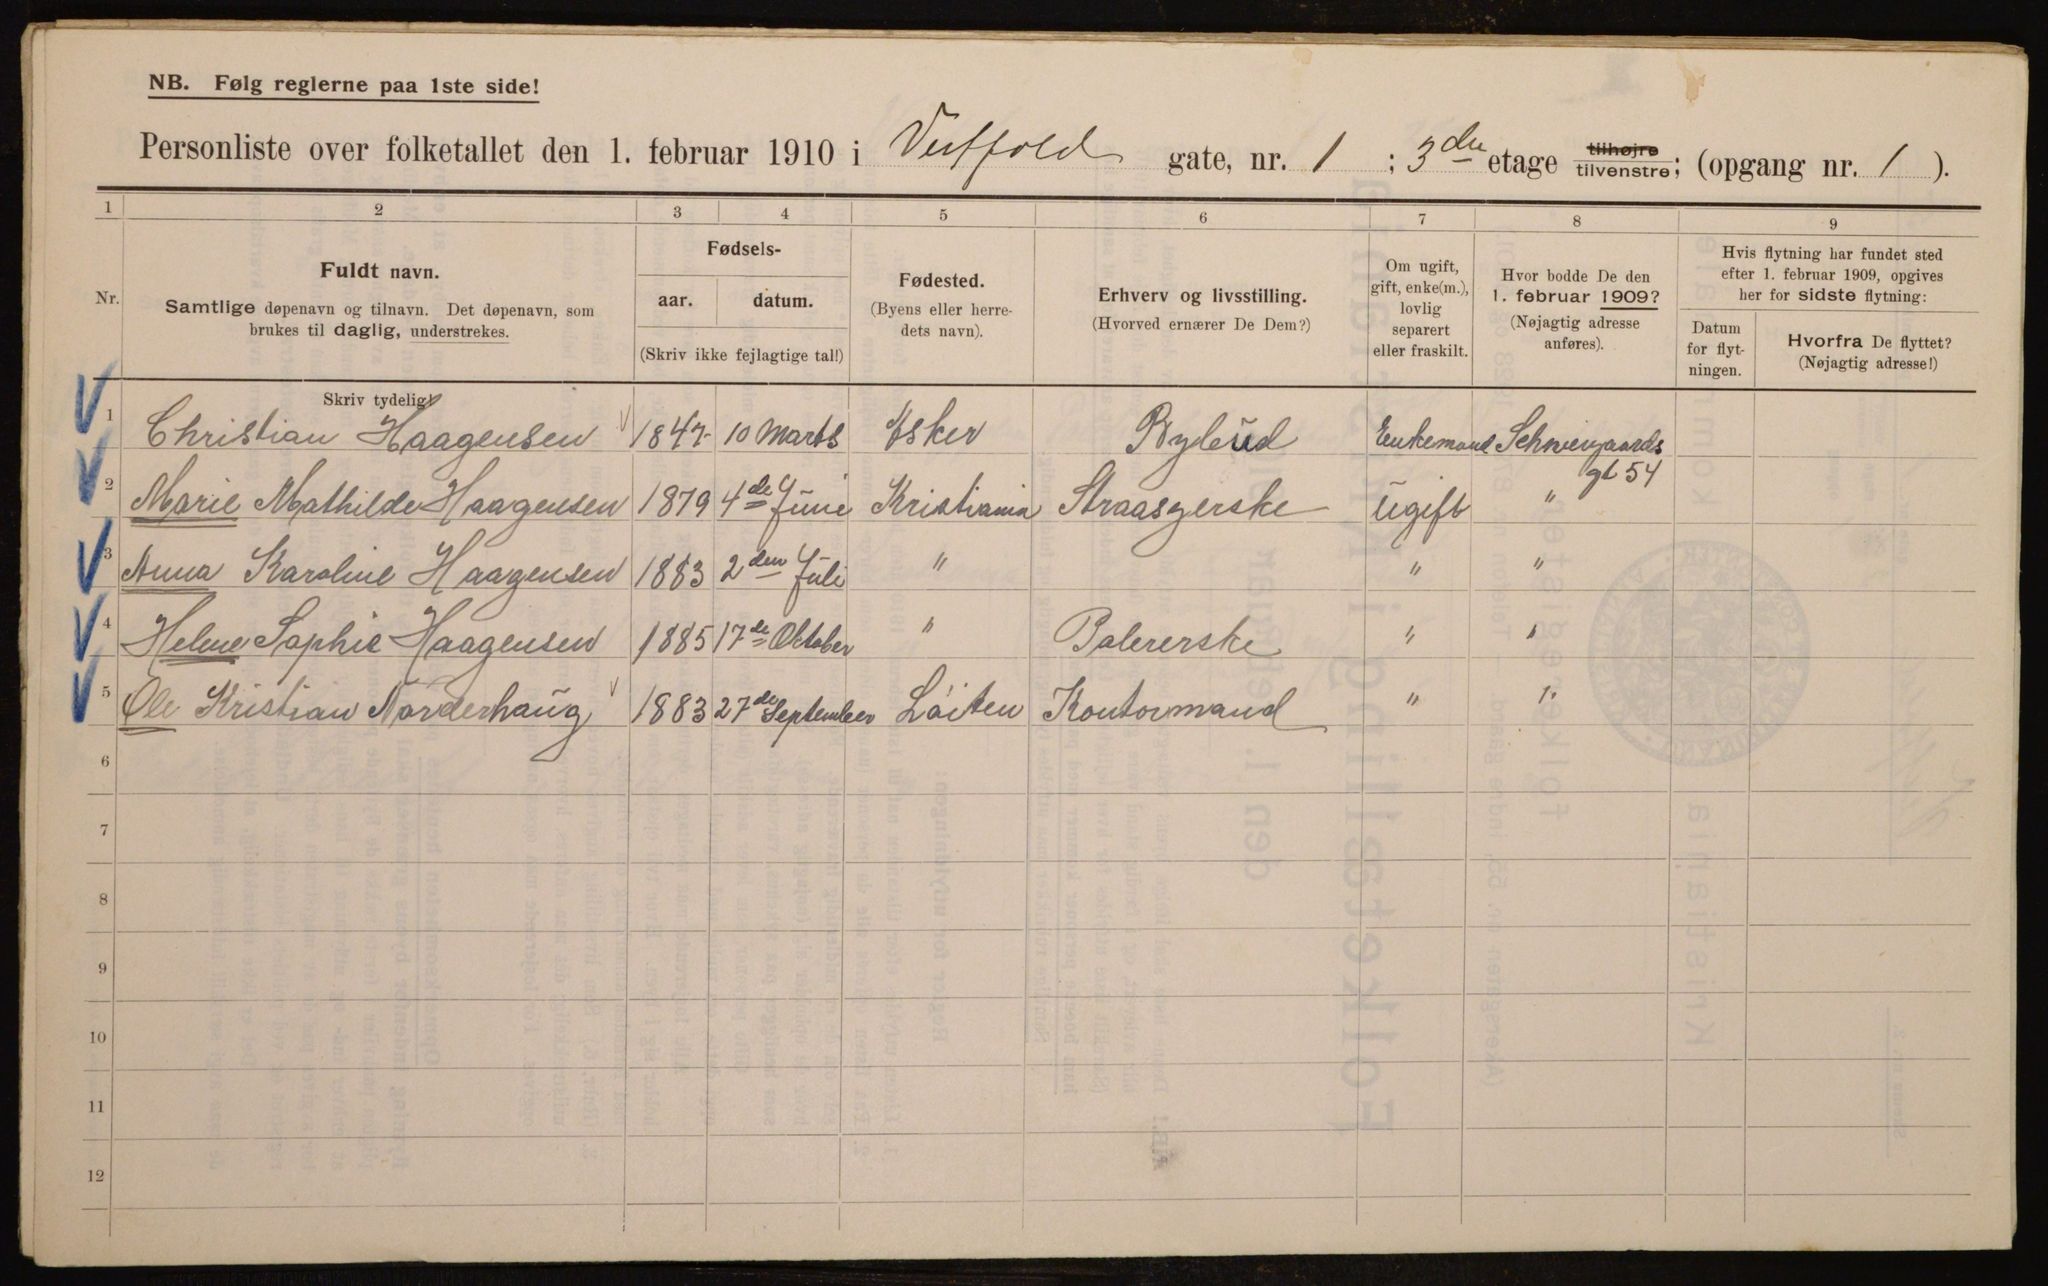 NB. Følg reglerne paa 1ste side!
Personliste over folketallet den 1. februar 1910 i Vestfold gate, nr. 1 ; 3die etage tilhøjre tilvenstre; (opgang nr. 1 ).
1 2 3 4 5 6 7 8 9
Nr.
Fuldt navn.
Samtlige døpenavn og tilnavn. Det døpenavn, som
brukes til daglig, understrekes.
Skriv tydelig!
Fødsels-
aar. datum.
(Skriv ikke fejlagtige tal!)
Fødested.
(Byens eller herre-
dets navn).
Erhverv og livsstilling.
(Hvorved ernærer De Dem?)
Om ugift,
gift, enke(m.),
lovlig
separert
eller fraskilt.
Hvor bodde De den
1. februar 1909?
(Nøjagtig adresse
anføres).
Hvis flytning har fundet sted
efter 1. februar 1909, opgives
her for sidste flytning:
Datum
for flyt-
ningen.
Hvorfra De flyttet?
(Nøjagtig adresse!)
1 Christian Haagensen 1847 10 Marts Asker Bylbud Enkemand Schweigaards gt 54
2 Marie Mathilde Haagensen 1879 4de Juni Kristiania Straasyerske Ugift "
3 Anna Karoline Haagensen 1883 2den Juli " " "
4 Helene Sophie Haagensen 1885 17de Oktober " Polererske " "
5 Ole Kristian Norderhaug 1883 27de September Löiten Kontormand " "
6
7
8
9
10
11
12